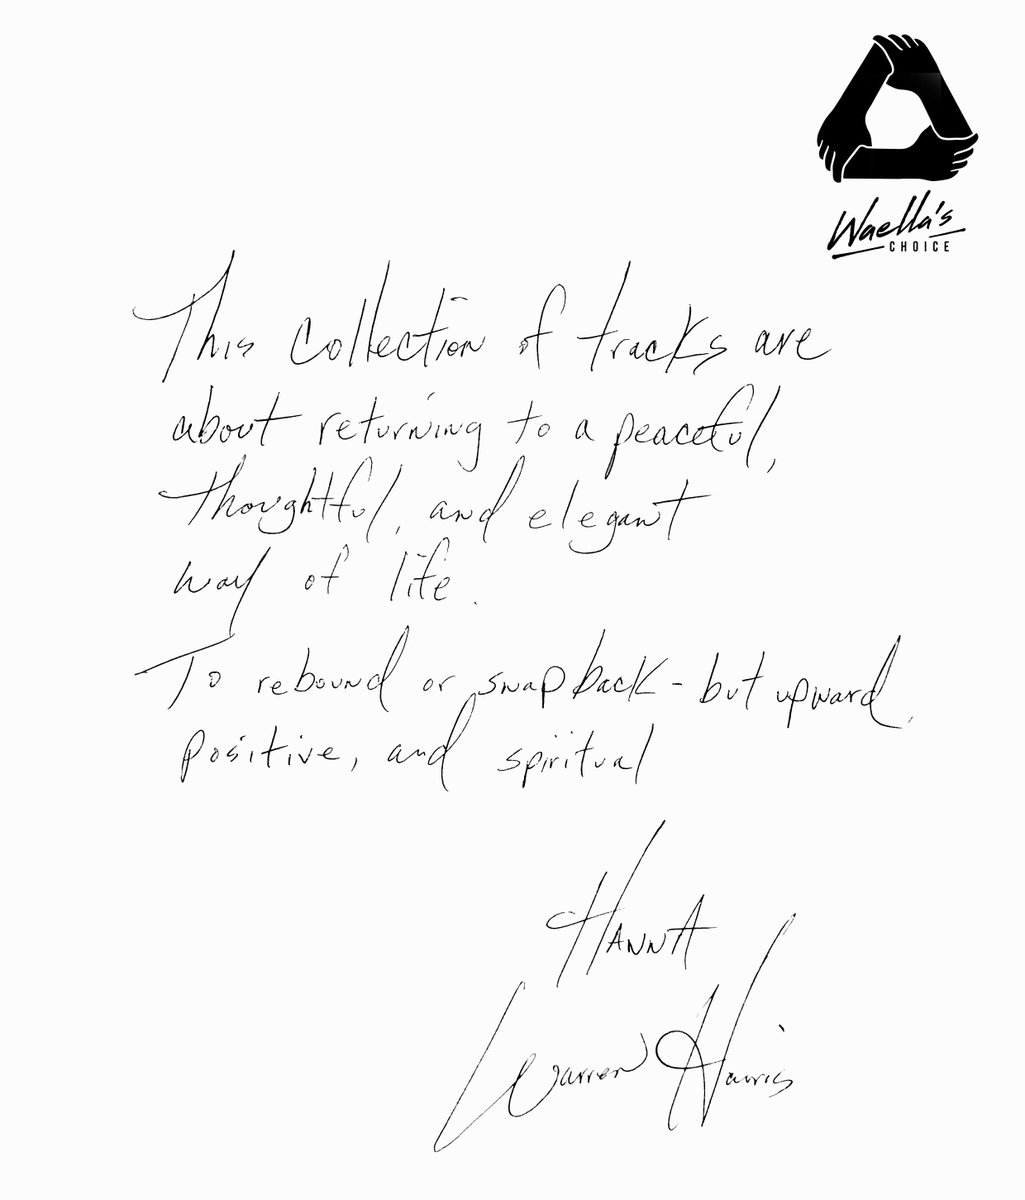 Waella's
CHOICE
This collection of tracks are
about returning to a peaceful,
thoughtful, and elegant
way of life.
To rebound or snapback - but upward,
positive, and spiritual
HANNA
Warren Harris